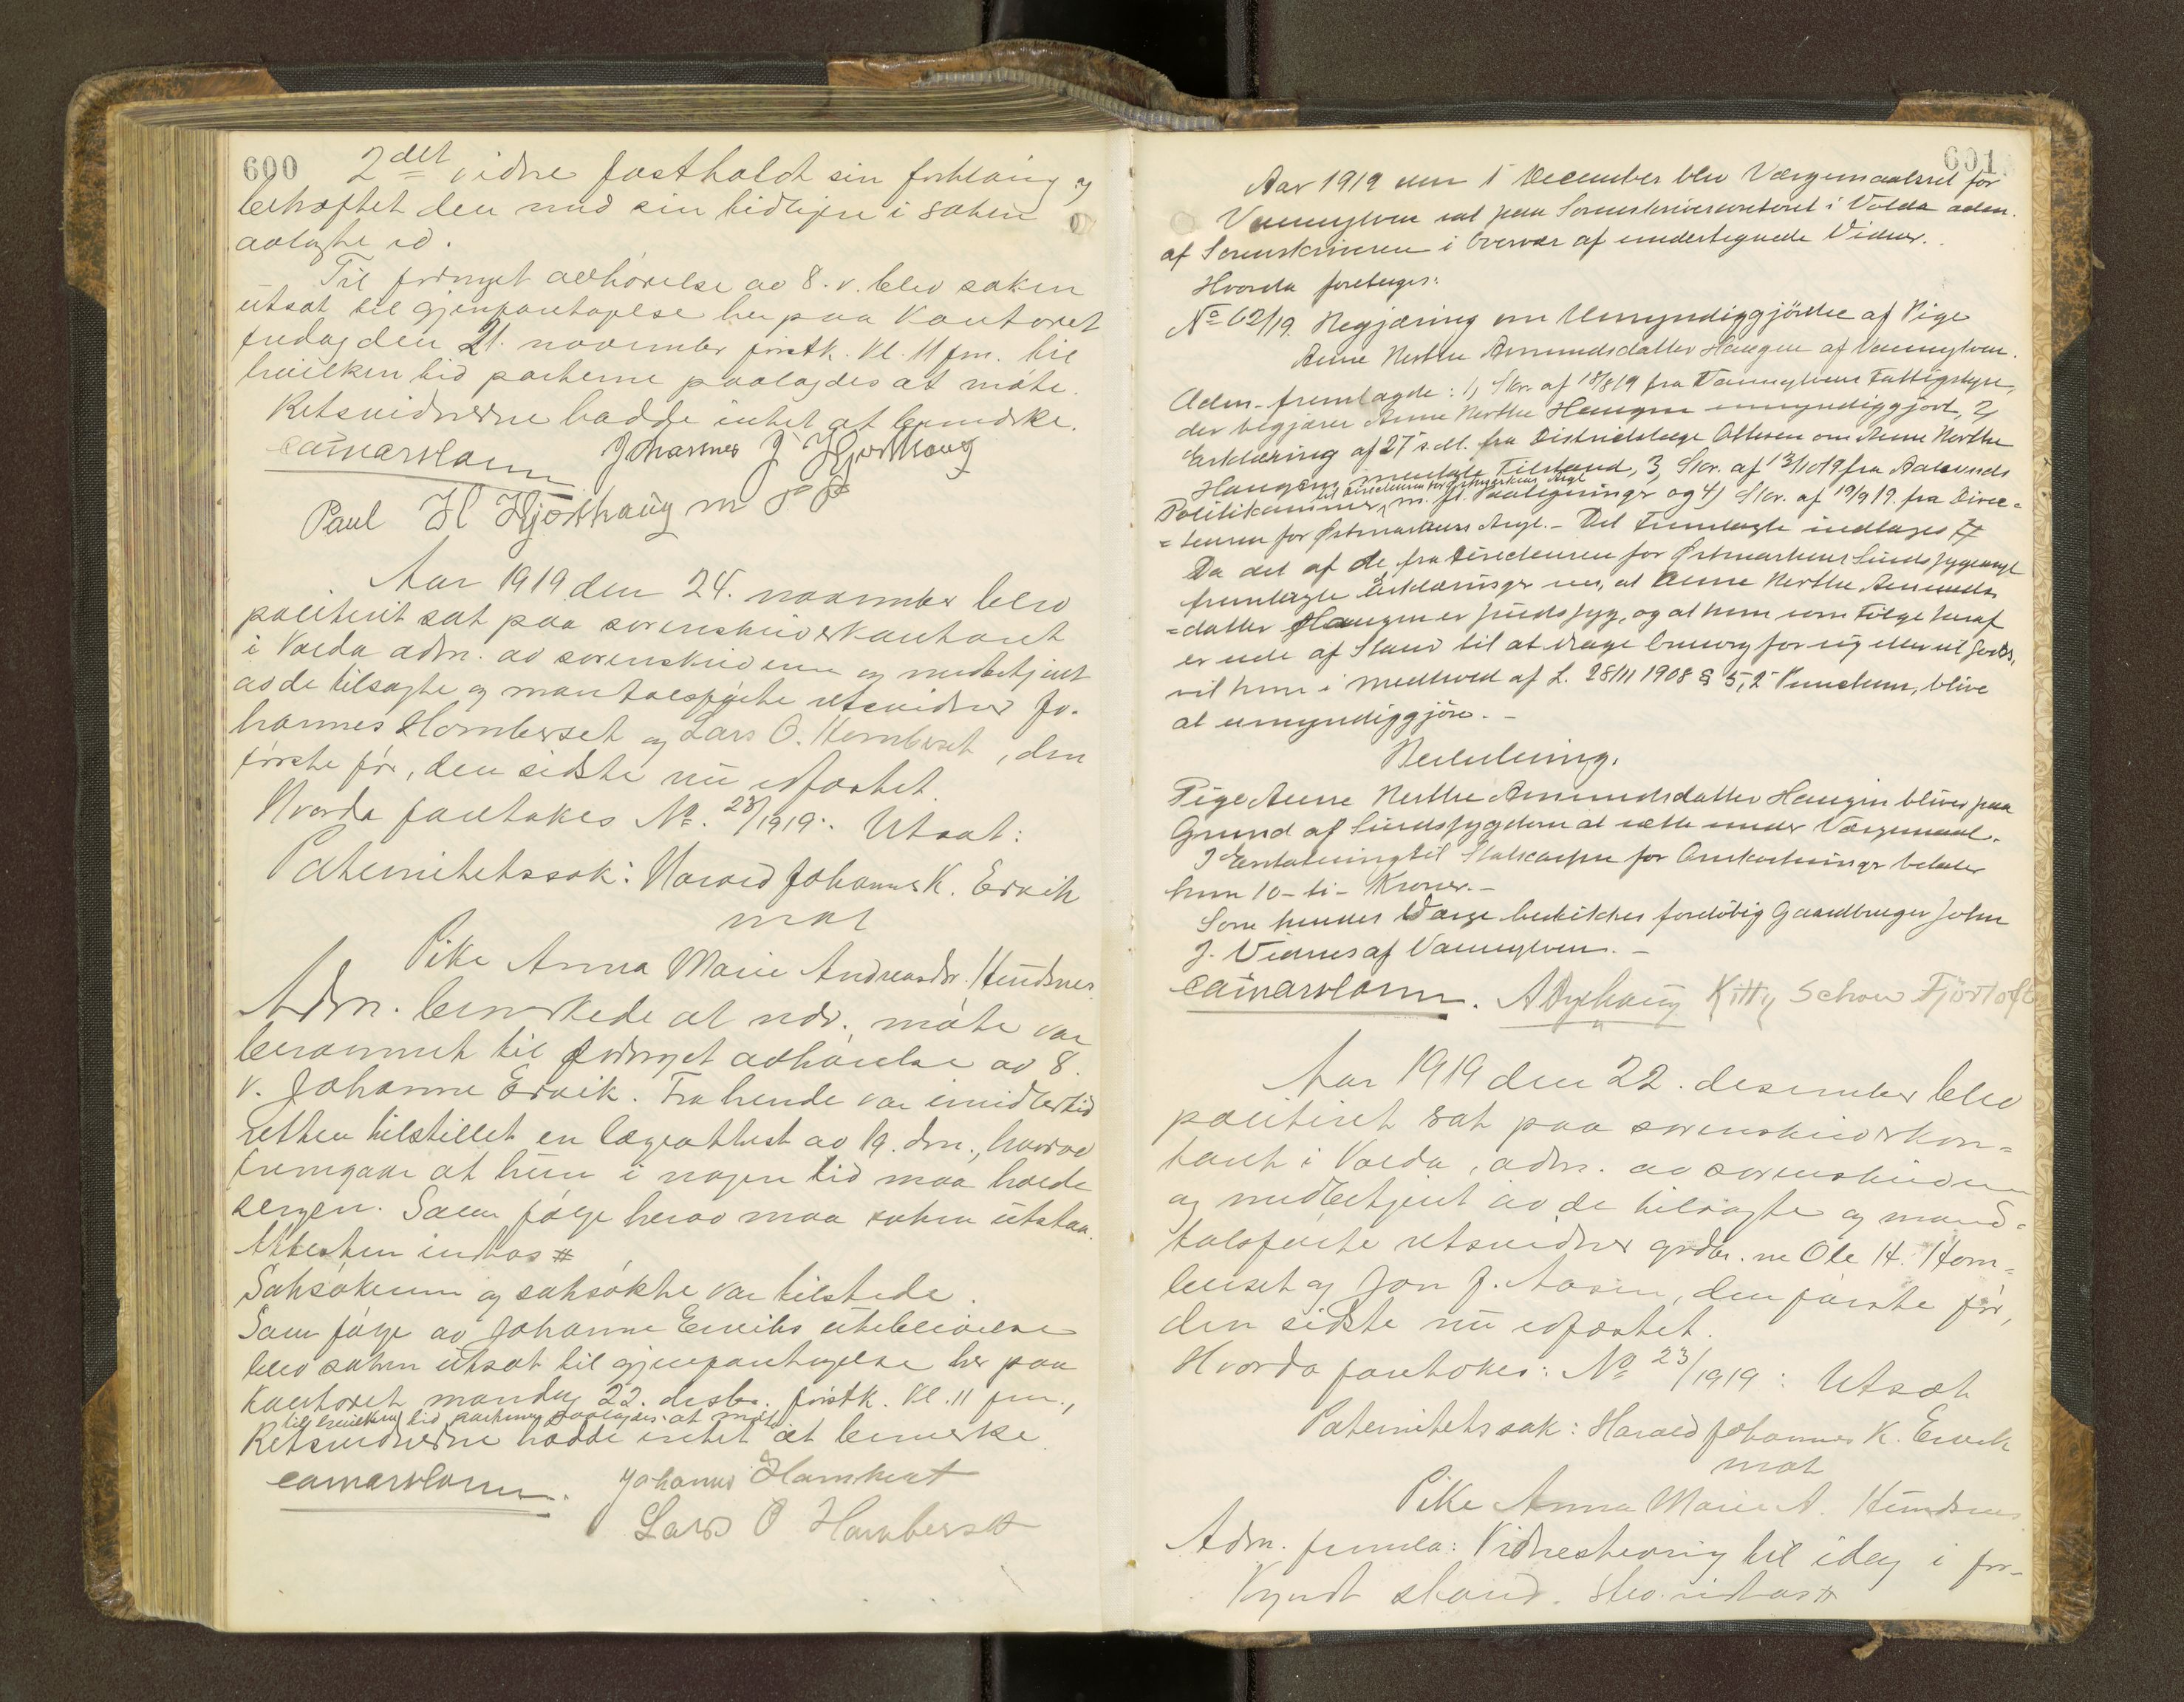 600
2det vidne fastholdt sin forklaring og
bekræftet den med sin tidligere i saken
avlagte ed.
Til fornyet avhørelse av 8. v. blev saken
utsat til gjenfortagelse her paa Kontoret
fredag den 21. november førstk. kl. 11 fm. til
hvilken tid parterne paalagdes at møte.
Retsvidnerne hadde intet at bemerke.
Johannes J. Hjorthaug
Paul H Hjorthaug m. P. P.
Aar 1919 den 24. november blev
politiret sat paa sorenskriverkontoret
i Volda adm. av sorenskriveren og medbetjent
av de tilsagte og mantalsførte retsvidner Jo-
hannes Homberset og Lars O. Homberset, den
første før, den sidste nu edfæstet.
Hvorda foretokes №. 23/1919: Utsat:
Paternitetssak: Harald Johannes K. Ervik
mot
Pike Anna Marie Andreasdr. Hundsnes.
Adm. bemerkede at ndv. møte var
berammet til fornyet avhørelse av 8.
v. Johanne Ervik. Fra hende var imidlertid
retten tilstillet en lægeattest av 19. dm., hvorav
fremgaar at hun i nogen tid maa holde
sengen. Som følge herav maa saken utstaa.
Attesten indtas #
Saksøkeren og saksøkte var tilstede.
Som følge av Johanne Erviks uteblivelse
blev saken utsat til gjenfortagelse her paa
Kontoret mandag 22. desbr. førstk. kl. 11 fm.,
til hvilken tid parterne paalagdes at møte.
Retsvidnerne hadde intet at bemerke.
Johannes Homberset
Lars O. Homberset
601
Aar 1919 den 1 December blev Værgemaalsret for
Vannylven sat paa Sorenskriverkontoret i Volda adm.
af Sorenskriveren i Overvær af undertegnede Vidner.
Hvorda foretages:
№ 62/19. Begjæring om Umyndiggjørelse af Pige
Anne Berthe Amundsdatter Haugen af Vannylven.
Adm. fremlagde: 1, Skr. af 18/8 19 fra Vannylvens Fattigstyre,
der begjærer Anne Berthe Haugen umyndiggjort, 2,
Erklæring af 27 s. M. fra Distriktslæge Ottesen om Anne Berthe
Haugens mentale Tilstand, 3, Skr. af 13/10 19 fra Aalesunds
til Direktøren for Østmarkens Asyl
Politikammer, m. fl. Paategninger og 4, Skr. af 19/9 19. fra Direc=
=tøren for Østmarkens Asyl. – Det Fremlagte indtages #
Da det af de fra Directøren for Østmarkens Sindssygeasyl
fremlagte Erklæringer sees, at Anne Berthe Amunds
=datter Haugen er sindssyg, og at hun som Følge heraf
er ude af Stand til at drage Omsorg for sig eller sit Gods,
vil hun i Medhold af L. 28/11 1908 § 5, 2 Punctum, blive
at umyndiggjøre. –
Beslutning.
Pige Anne Berthe Amundsdatter Haugen bliver paa
Grund af Sindssygdom at sætte under Værgemaal.
I Erstatning til Statskassen for Omkostninger betaler
hun 10 – ti – Kroner. –
Som hendes Værge beskikkes foreløbig Gaardbruger John
J. Vidnes af Vannylven. –
Kitty Schow Fjørtoft
Aar 1919 den 22. desember blev
politiret sat paa sorenskriverkon=
toret i Volda, adm. av sorenskriveren
og medbetjent av de tilsagte og mand=
talsførte retsvidner grdbr. ne Ole H. Hom=
berset og Jon J. Aasen, den første før,
den sidste nu edfæstet.
Hvorda foretokes: № 23/1919: Utsat
Paternitetssak: Harald Johannes K. Ervik
mot
Pike Anna Marie A. Hundsnes
Adm. fremla: Vidnestevning til idag i for-
kyndt stand. Stev. indtas #